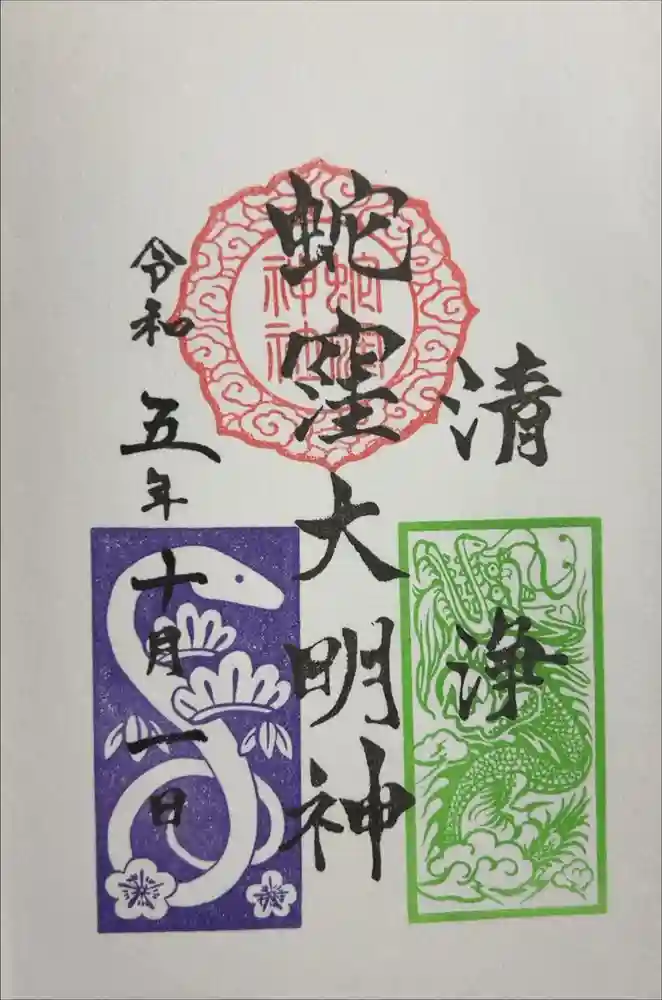 清浄
蛇窪大明神
蛇窪
神社
令和五年十月一日